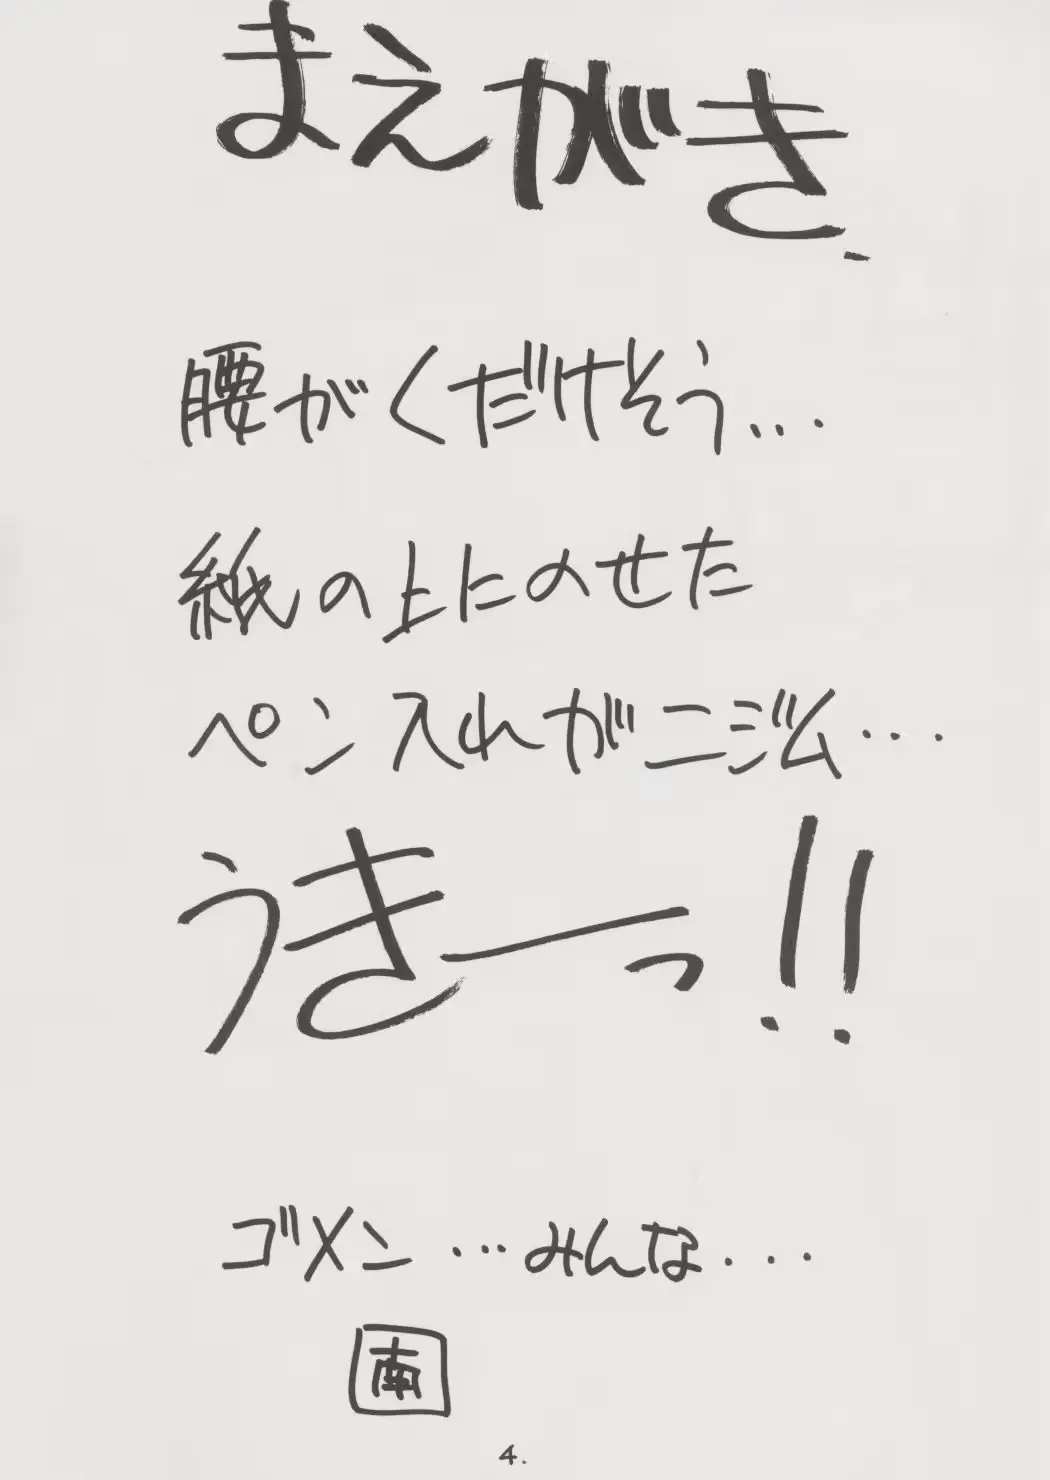 まえがき
腰がくだけそう...
紙の上にのせた
ペン入れがニジム...
うきーっ!!
ゴメン...みんな...
南
4.